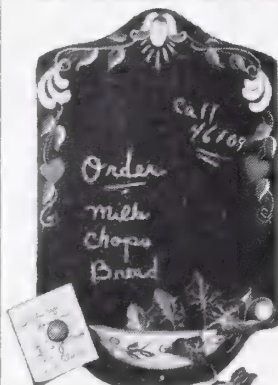 Call
46809
Order
Milk
Chops
Bread